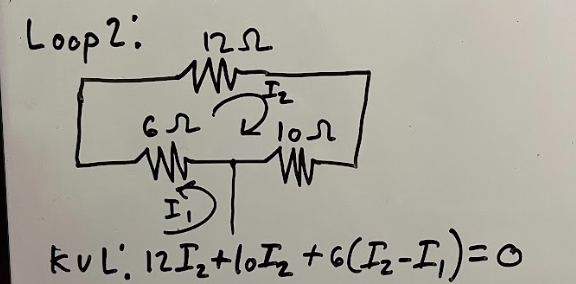 Loop 2:
12 Ω
I₂
6 Ω
10 Ω
I₁
KVL: 12I₂+10I₂+6(I₂-I₁)=0